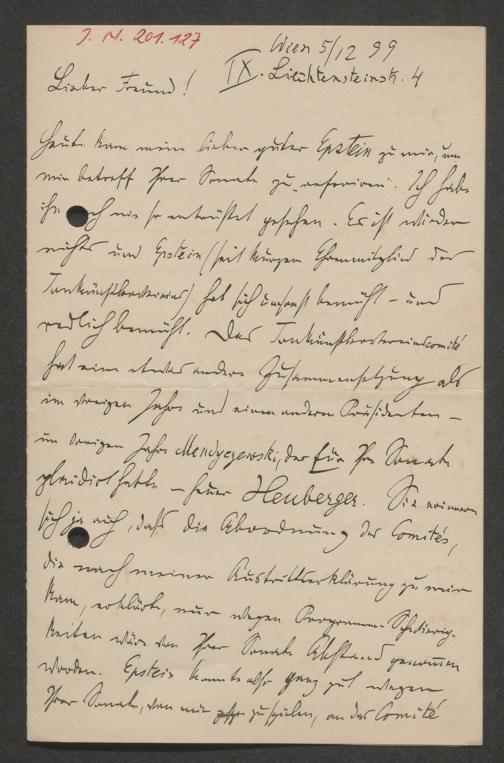 J. N. 201.127
Wien 5/12 99
IX. Liechtensteinstr. 4
Lieber Freund!
Heute kam mein lieber guter Epstein zu mir, um
mir betreff Ihrer Sonate zu referiren. Ich habe
ihn noch nie so entrüstet gesehen. Es ist wieder
nichts und Epstein (seit kurzem Ehrenmitglied des
Tonkünstlervereines) hat sich umsonst bemüht – und
redlich bemüht. Das Tonkünstlervereinscomité
hat eine etwas andere Zusammensetzung als
im vorigen Jahre und einen anderen Präsidenten –
im vorigen Jahre Mandyczewski, der für Ihre Sonate
plaidirt hatte – heuer Heuberger. Sie erinnern
sich ja auch, daß die Abordnung des Comités,
die nach meiner Austrittserklärung zu mir
kam, erklärte, nur wegen Programm-Schwierig-
keiten wäre von Ihrer Sonate Abstand genommen
worden. Epstein konnte also ganz gut wegen
Ihrer Sonate, von mir zu spielen, an das Comité